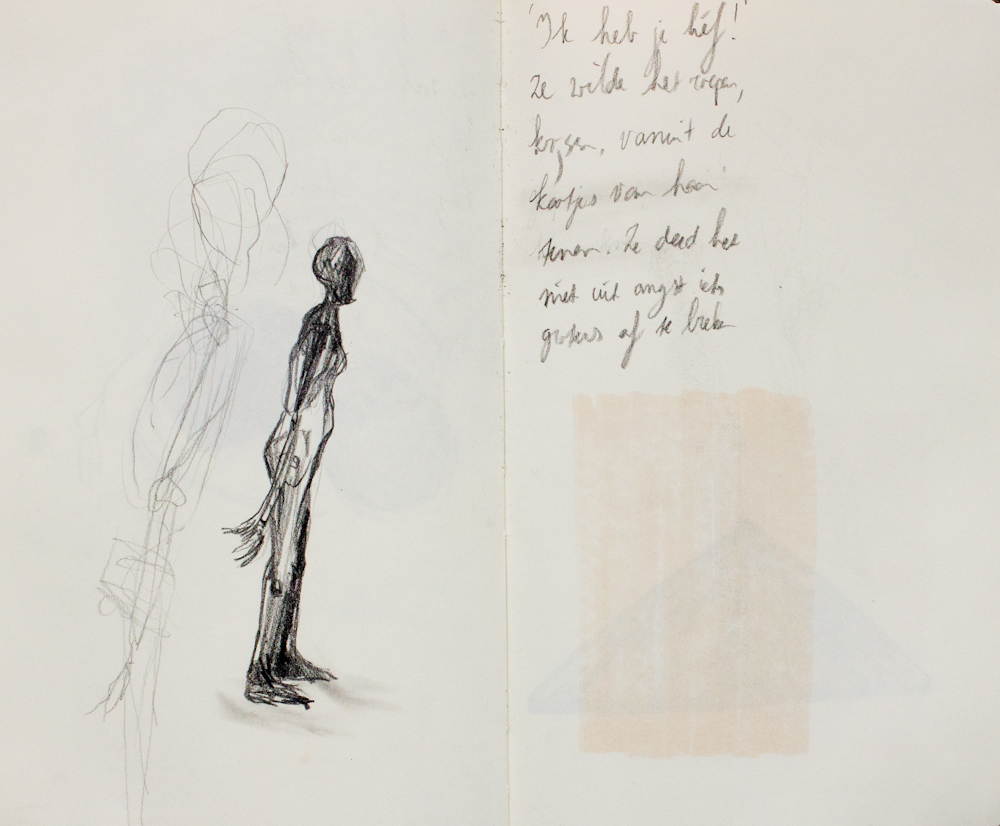 'Ik heb je lief!'
Ze wilde het roepen,
vanuit de
kootjes van haar
tenen. Ze deed het
niet uit angst iets
groters af te breken